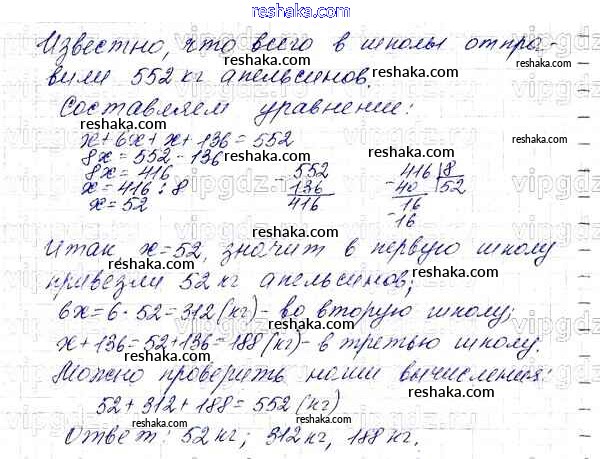 reshaka.com
Известно, что всего в школы отпра-
вили 552 кг апельсинов.
reshaka.com
Составляем уравнение:
reshaka.com
reshaka.com
x + 6x + x + 136 = 552
8x = 552 - 136
8x = 416
x = 416 : 8
x = 52
- 552
136
416
416 | 8
- 40 | 52
16
- 16
reshaka.com
reshaka.com
reshaka.com
Итак x = 52, значит в первую школу
привезли 52 кг апельсинов;
reshaka.com
6x = 6 · 52 = 312 (кг) - во вторую школу;
reshaka.com
x + 136 = 52 + 136 = 188 (кг) - в третью школу.
reshaka.com
Можно проверить наши вычисления:
reshaka.com
52 + 312 + 188 = 552 (кг)
reshaka.com
Ответ: 52 кг; 312 кг, 188 кг.
reshaka.com